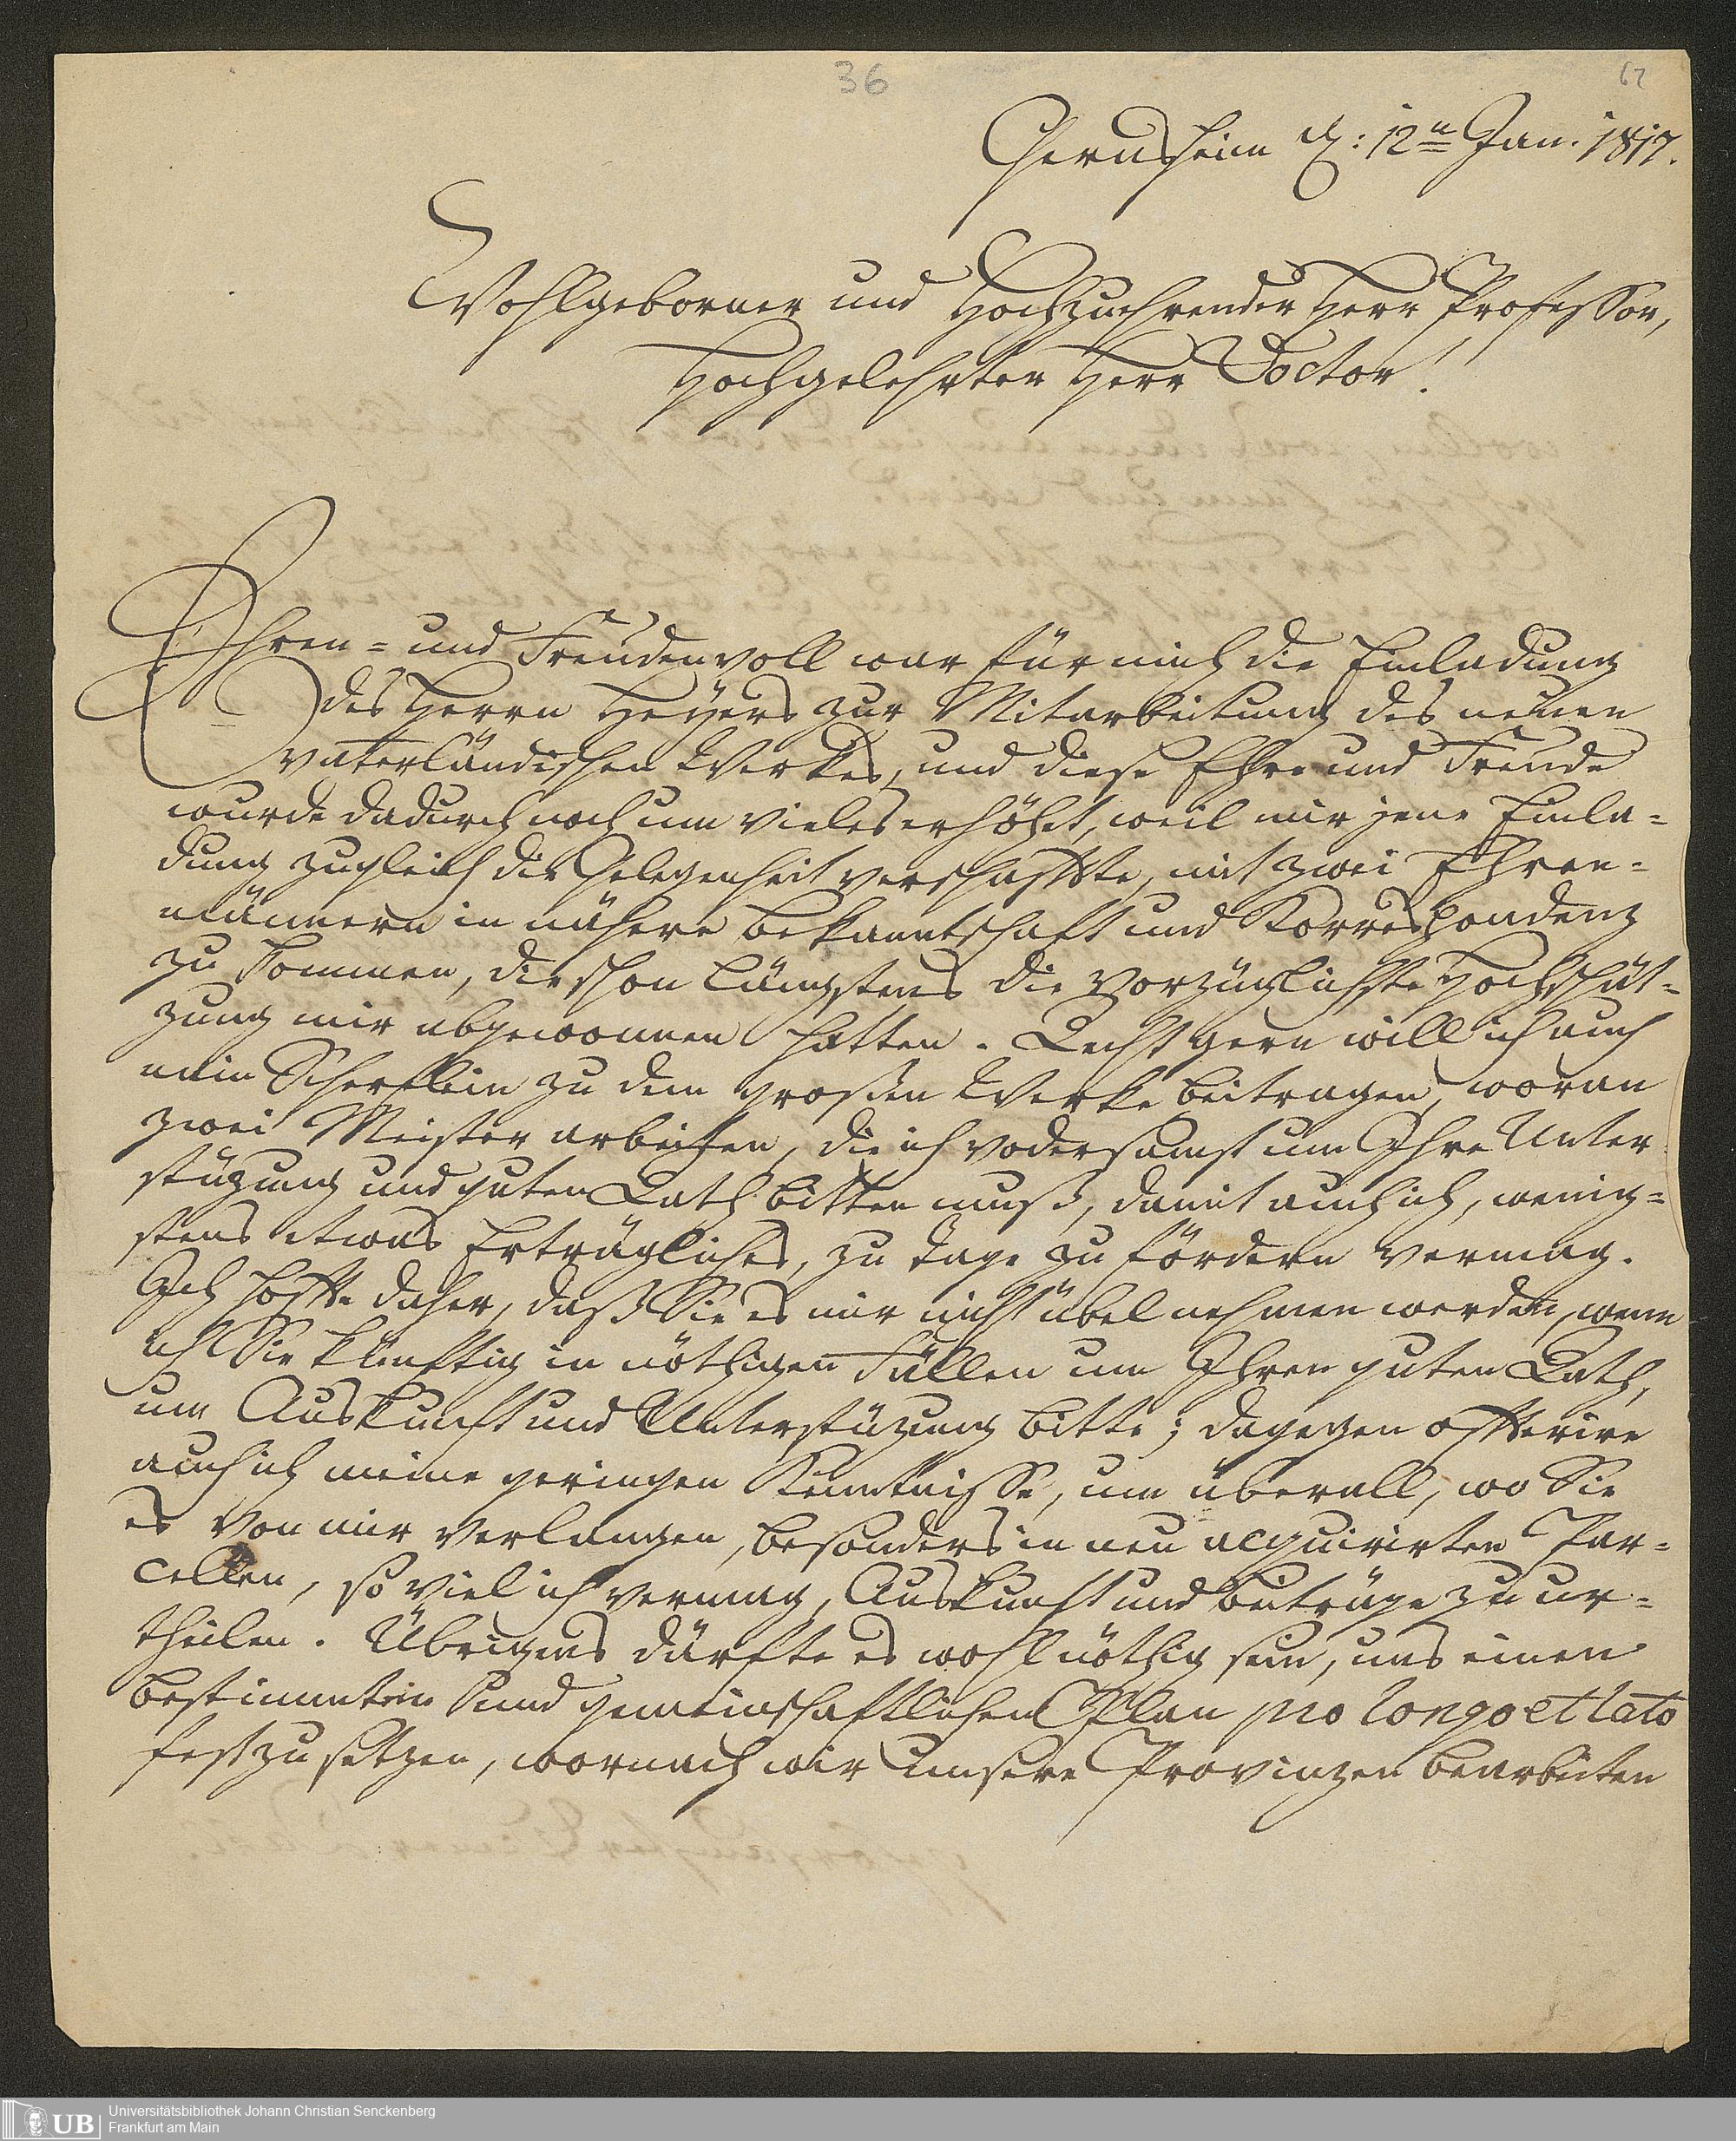 36
62
Gernsheim d: 12n Jan. 1817.
Wohlgeborner und Hochzuehrender Herr Professor,
Hochgelehrter Herr Doctor!
Ehren- und Freudenvoll war für mich die Einladung
des Herrn Heÿers zur Mitarbeitung des neuen
vaterländischen Werkes, und diese Ehre und Freude
wurde dadurch noch um vieles erhöht, weil mir jene Einla-
dung zugleich die Gelegenheit verschaffte, mit zwei Ehren-
männern in nähere Bekanntschaft und Korrespondenz
zu kommen, die schon längstens die vorzüglichste Hochschät-
zung mir abgewonnen hatten. Recht gern will ich auch
mein Scherflein zu dem großen Werke beitragen, woran
zwei Meister arbeiten, die ich vodersamst um Ihre Unter
stüzung und guten Rath bitten muß, damit auch ich, wenig-
stens etwas Erträgliches, zu Tage zu fördern vermag.
Ich hoffe daher, daß Sie es mir nicht übel nehmen werden, wenn
ich Sie künftig in nöthigen Fällen um Ihren guten Rath,
um Auskunft und Unterstüzung bitte; dagegen offerire
auch ich meine geringen Kenntnisse, um überall, wo Sie
es von mir verlangen, besonders in neu acquirirten Par-
cellen, so viel ich vermag, Auskunft und Beiträge zu er-
theilen. Übrigens därfte es wohl nöthig sein, uns einen
bestimmten und gemeinschaftlichen Plan pro longo et lato
festzusetzen, wornach wir unsere Provinzen bearbeiten
UB
Universitätsbibliothek Johann Christian Senckenberg
Frankfurt am Main